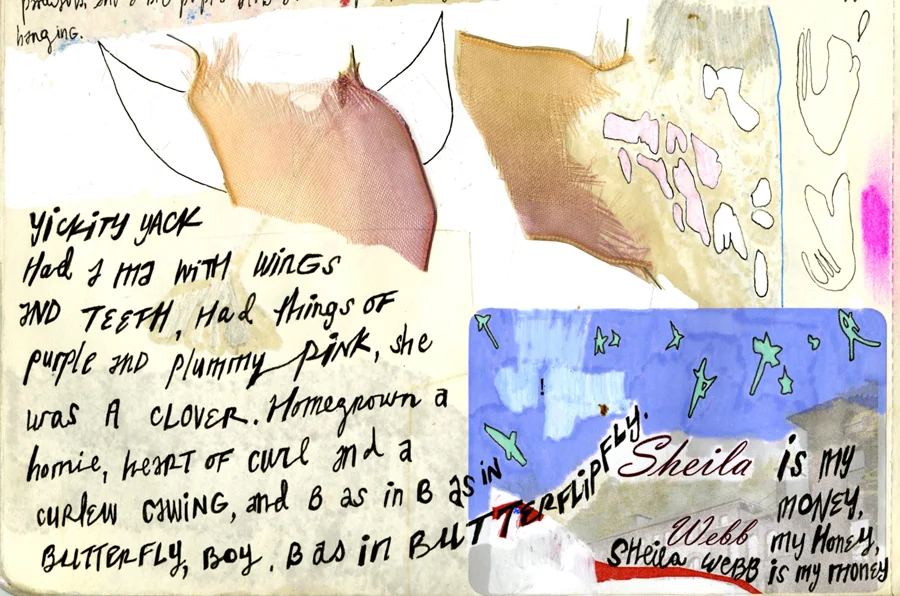 hanging.
YICKITY YACK
Had I MA WITH WINGS
AND TEETH, Had things OF
purple and plummy PINK, she
was A CLOVER. Homegrown a
homie, heart of curl and a
curlew CAWING, and B as in B as in
BUTTERFLY, BOY. B as in BUTTERFLIPFLY.
Sheila is my
MONEY,
Webb my Honey,
SHeila WEBB is my money